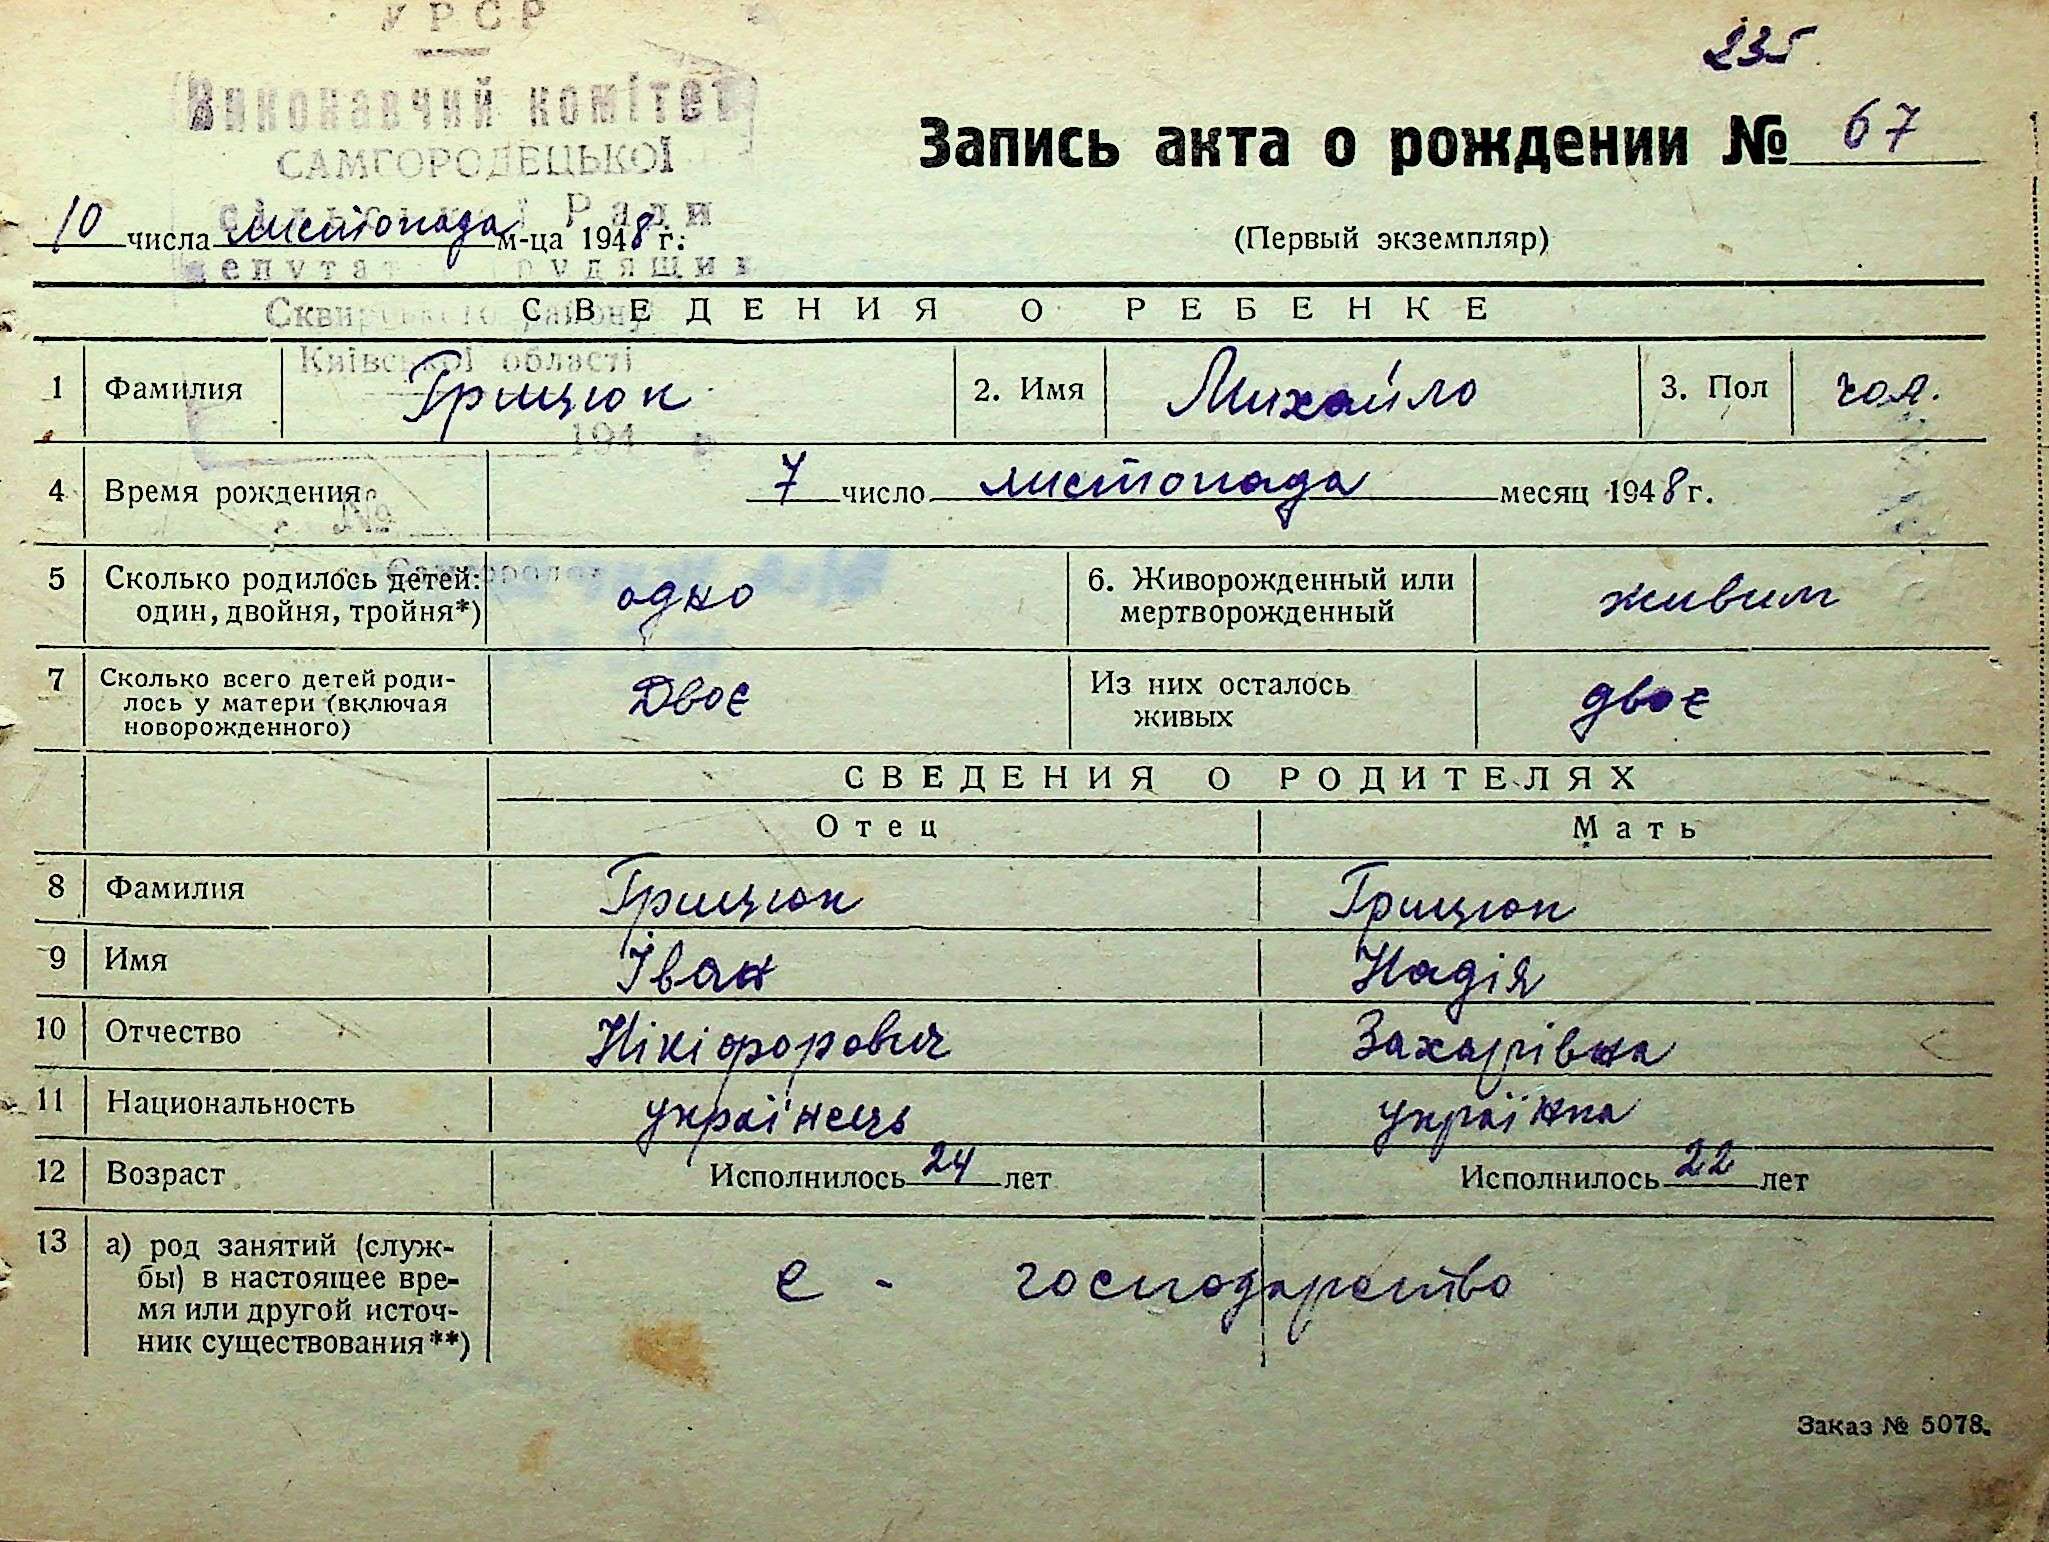 УРСР
235
Виконавчий комітет
САМГОРОДЕЦЬКОЇ
сільської Ради
депутат трудящих
Сквирського району
Київської області
194 р
№
Запись акта о рождении № 67
10 числа листопада м-ца 1948 г.
(Первый экземпляр)
СВЕДЕНИЯ О РЕБЕНКЕ
1 Фамилия Грицюк 2. Имя Михайло 3. Пол чол.
4 Время рождения 7 число листопада месяц 1948 г.
5 Сколько родилось детей: один, двойня, тройня*) одно 6. Живорожденный или мертворожденный живим
7 Сколько всего детей роди-
лось у матери (включая
новорожденного) Двоє Из них осталось живых двоє
СВЕДЕНИЯ О РОДИТЕЛЯХ
Отец Мать
8 Фамилия Грицюк Грицюк
9 Имя Іван Надія
10 Отчество Нікіфорович Захарівна
11 Национальность українець українка
12 Возраст Исполнилось 24 лет Исполнилось 22 лет
13 а) род занятий (служ-
бы) в настоящее вре-
мя или другой источ-
ник существования**) с - господарство
Заказ № 5078.